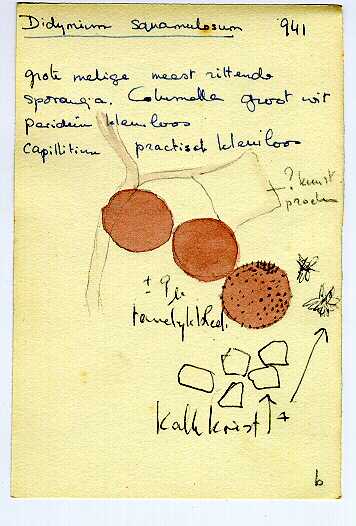 Didymium squamulosum 941
grote melige meest zittende
sporangia. Columella groot wit
peridium kleurloos
Capillitium practisch kleurloos
? kunst
produ
± 9 µ
Kalkkrist
b